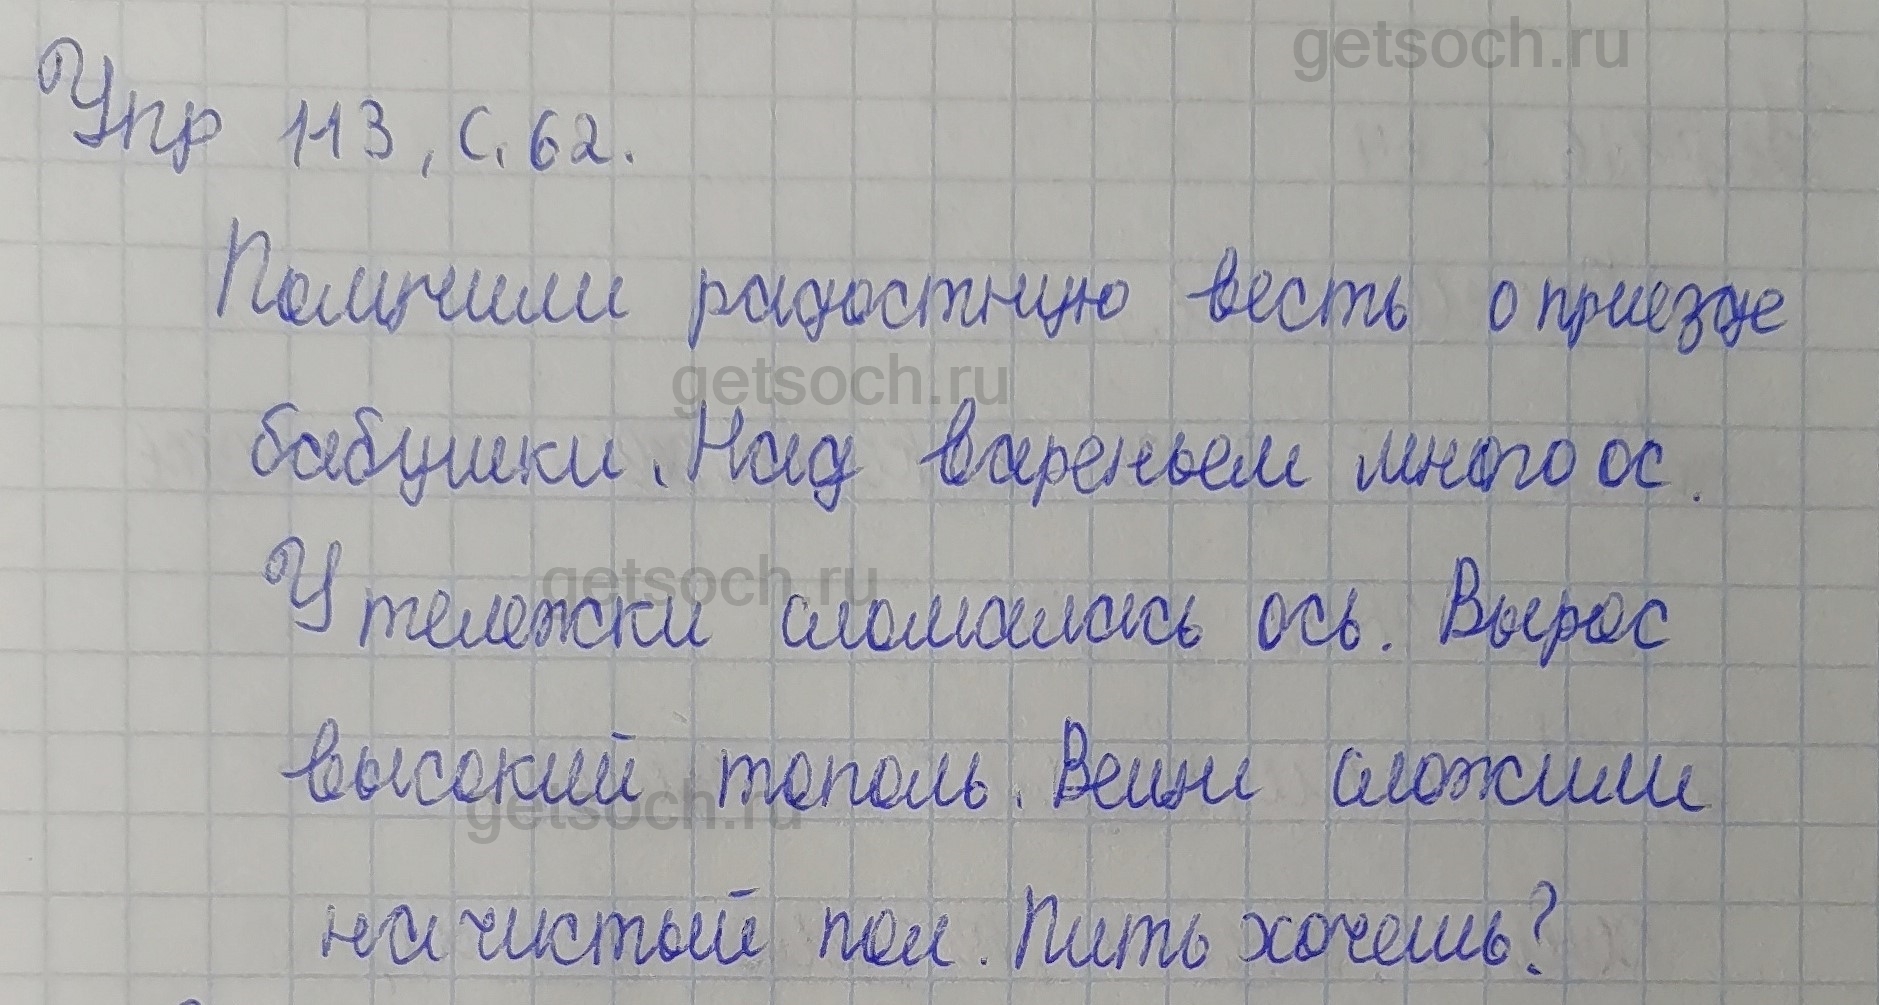 getsoch.ru
Упр 113, с. 62.
Получили радостную весть о приезде
getsoch.ru
бабушки. Над вареньем много ос.
getsoch.ru
У тележки сломалась ось. Вырос
высокий тополь. Вещи сложили
getsoch.ru
на чистый пол. Пить хочешь?